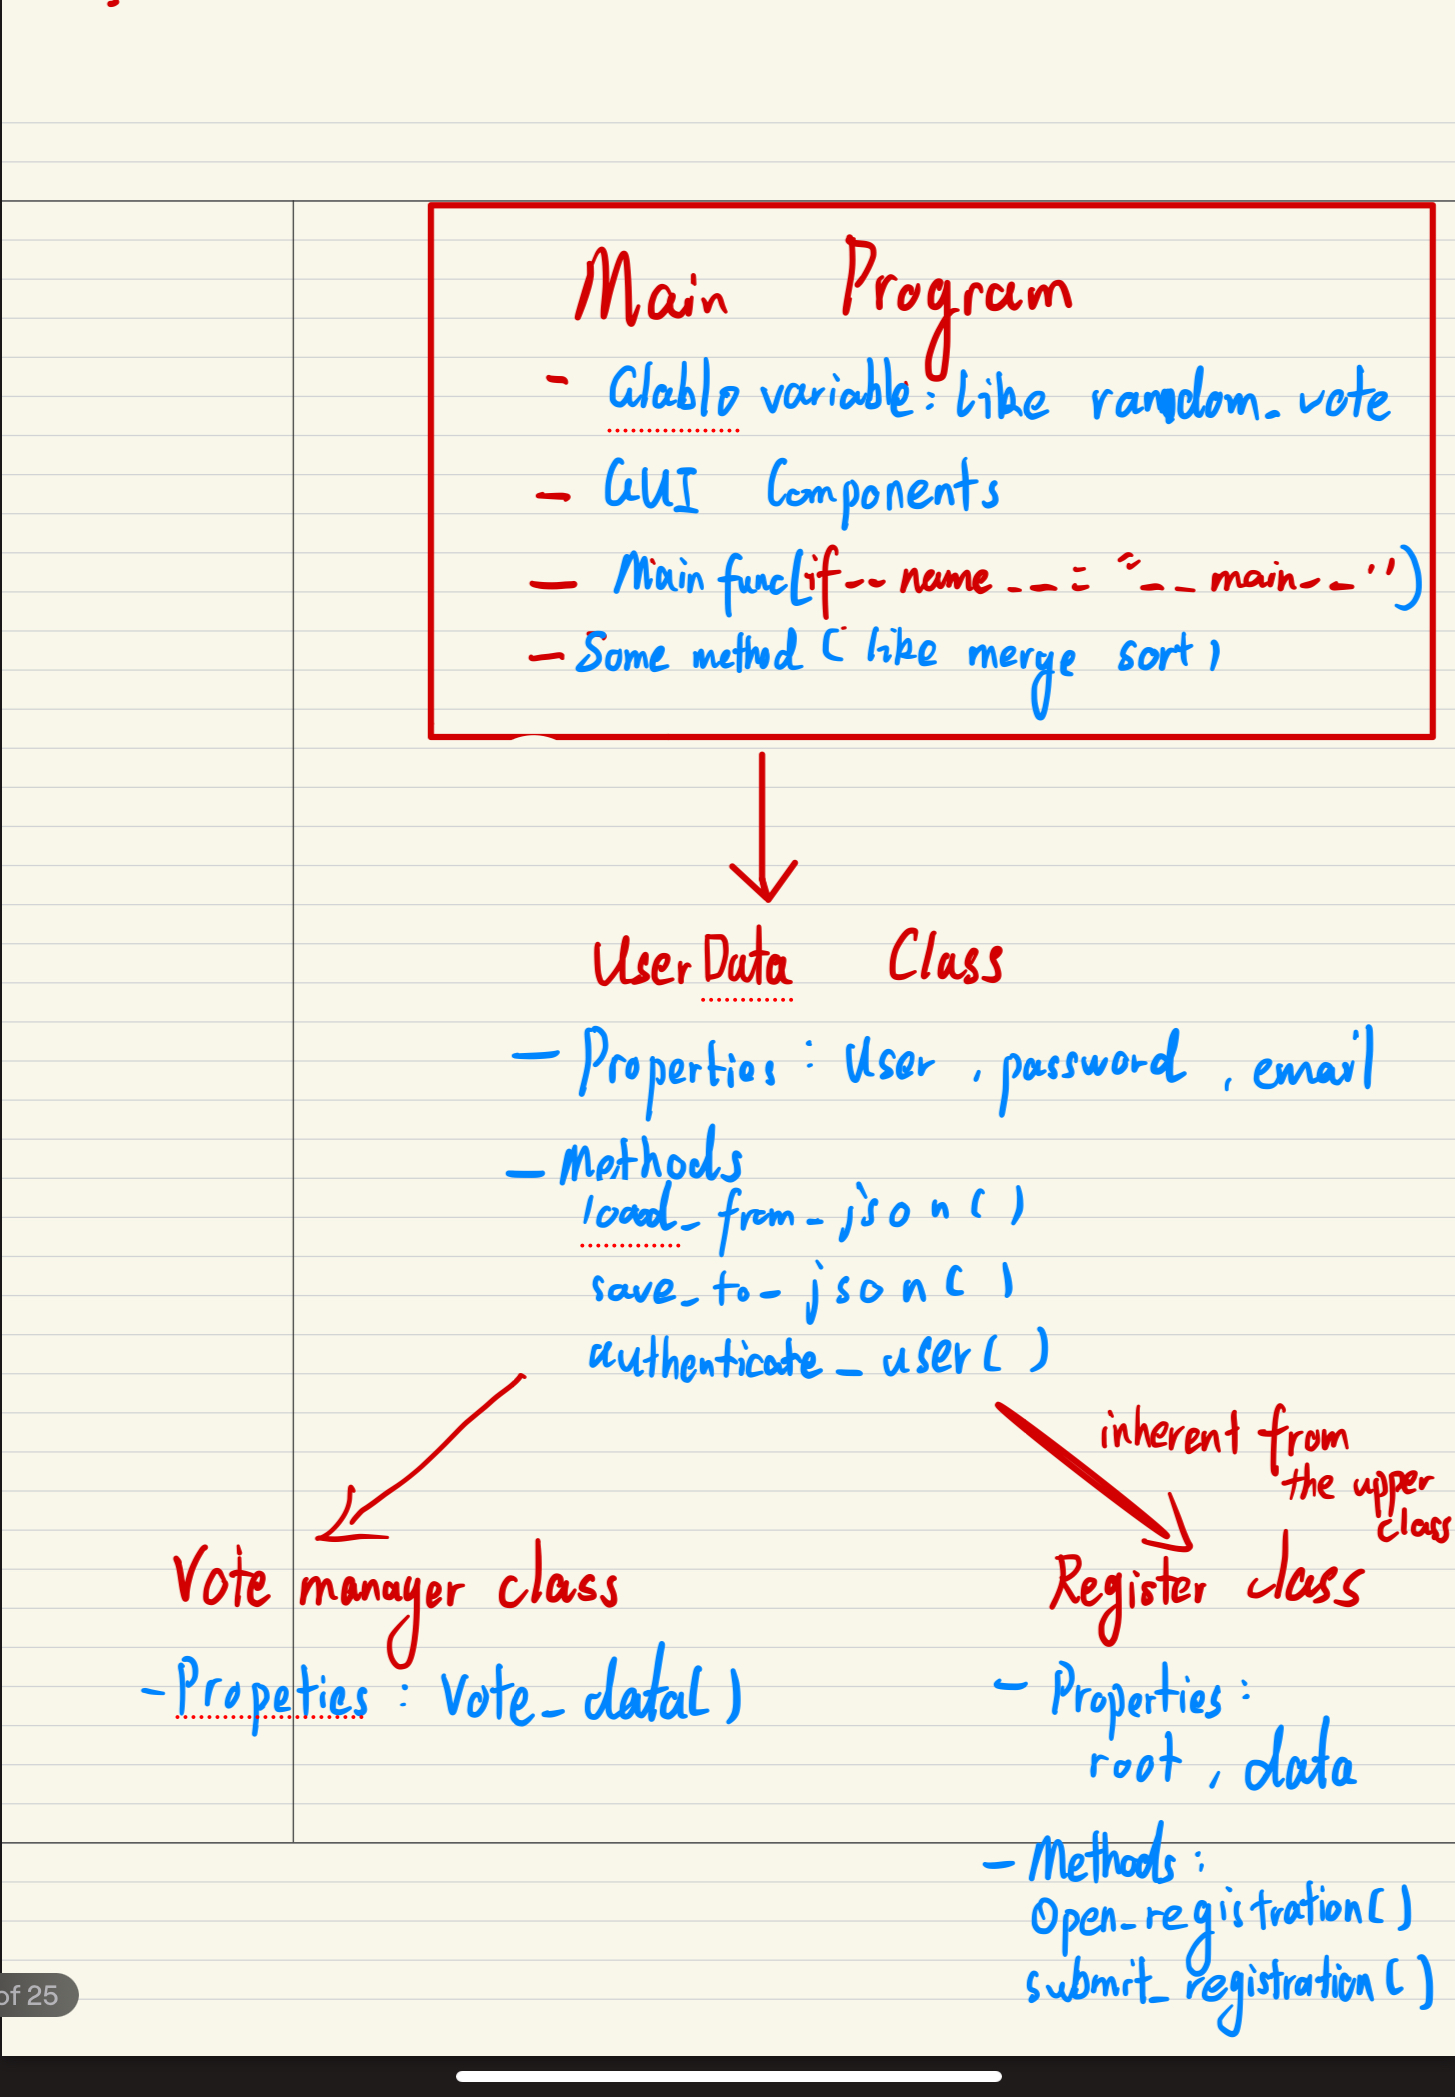 Main Program
- Glablo variable: like random_vote
- GUI Components
- Main func(if __name__ = "__main__")
- Some method (like merge sort)
UserData Class
- Properties: User, password, email
- Methods
load_from_json()
save_to_json()
authenticate_user()
inherent from
the upper
class
Vote manager class
Register class
- Propeties: Vote_data()
- Properties:
root, data
- Methods:
Open_registration()
submit_registration()
of 25